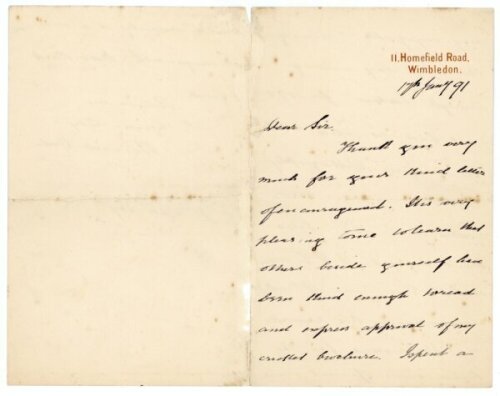 11, Homefield Road,
Wimbledon.
17th Jany 91
Dear Sir.
Thank you very
much for your kind letter
of encouragement. It is very
pleasing to me to learn that
others beside yourself have
been kind enough to read
and express approval of my
cricket brochure. I spent a